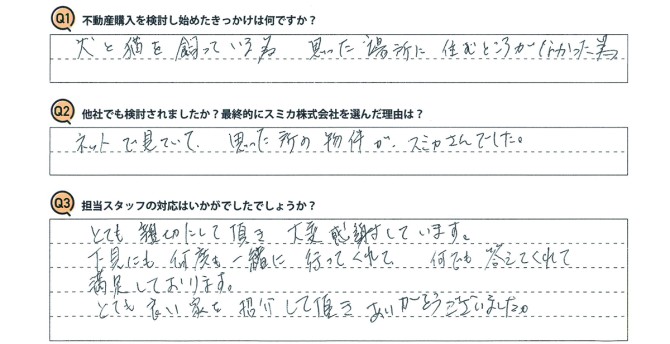 Q1 不動産購入を検討し始めたきっかけは何ですか？
犬と猫を飼っている為 思った場所に住むところがなかった為
Q2 他社でも検討されましたか？最終的にスミカ株式会社を選んだ理由は？
ネットで見ていて、思った所の物件が、スミカさんでした。
Q3 担当スタッフの対応はいかがでしたでしょうか？
とても親切にして頂き 大変感謝しています。
下見にも何度も一緒に行ってくれて、何でも答えてくれて
満足しております。
とても良い家を紹介して頂きありがとうございました。